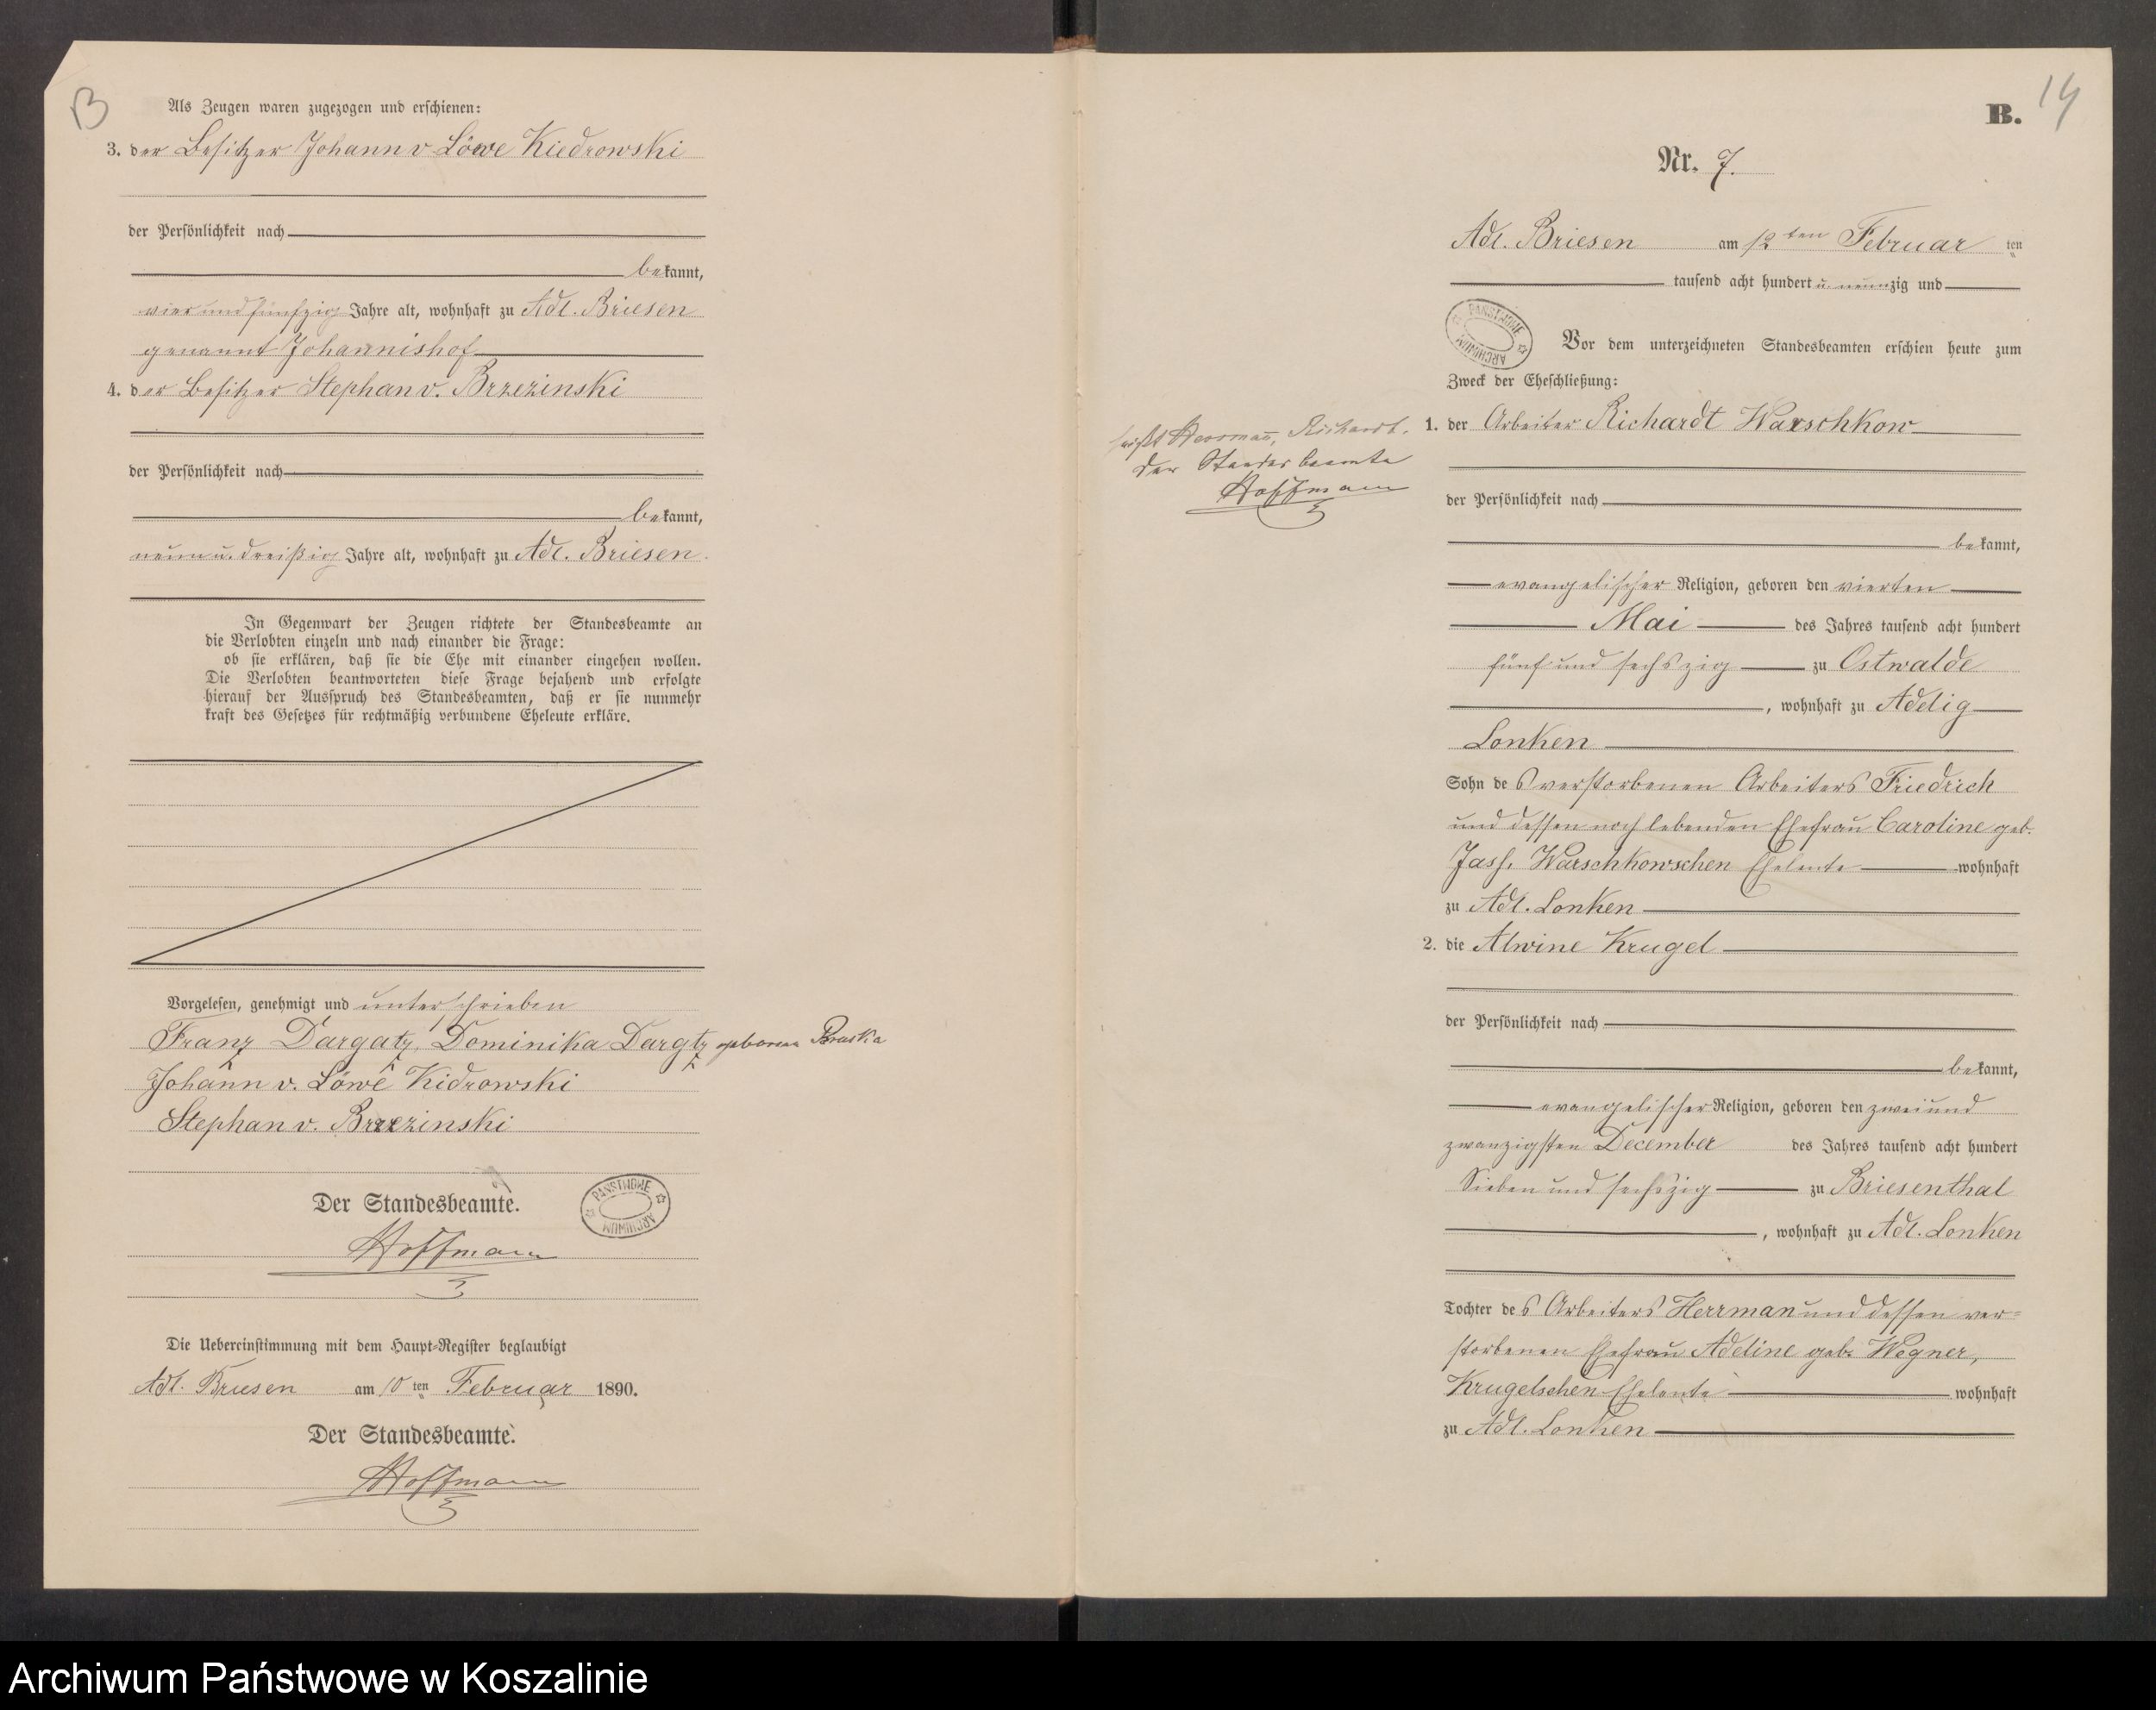 B
Als Zeugen waren zugezogen und erschienen:
3. der Besitzer Johann v Löwe Kiedrowski
der Persönlichkeit nach
bekannt,
vier und fünfzig Jahre alt, wohnhaft zu Adl. Briesen
genannt Johannishof
4. der Besitzer Stephan v. Brzezinski
der Persönlichkeit nach
bekannt,
neun u. dreißig Jahre alt, wohnhaft zu Adl. Briesen.
In Gegenwart der Zeugen richtete der Standesbeamte an
die Verlobten einzeln und nach einander die Frage:
ob sie erklären, daß sie die Ehe mit einander eingehen wollen.
Die Verlobten beantworteten diese Frage bejahend und erfolgte
hierauf der Ausspruch des Standesbeamten, daß er sie nunmehr
kraft des Gesetzes für rechtmäßig verbundene Eheleute erkläre.
Vorgelesen, genehmigt und unterschrieben
Franz Dargatz, Dominika Dargtz geborene
Johann v. Löwe Kidrowski
Stephan v. Brzezinski
Der Standesbeamte.
Hoffmann
PAŃSTWOWE ARCHIWUM
Die Uebereinstimmung mit dem Haupt-Register beglaubigt
Adl. Briesen am 10 ten Februar 1890.
Der Standesbeamte.
Hoffmann
14
B.
Nr. 7.
Adl. Briesen am 12 ten Februar ten
tausend acht hundert u. neunzig und
PAŃSTWOWE ARCHIWUM
Vor dem unterzeichneten Standesbeamten erschien heute zum
Zweck der Eheschließung:
1. der Arbeiter Richardt Warschkow
heißt Herrmann, Richardt.
Der Standesbeamte
Hoffmann
der Persönlichkeit nach
bekannt,
evangelischer Religion, geboren den vierten
Mai des Jahres tausend acht hundert
fünf und sechszig zu Ostwalde
, wohnhaft zu Adelig
Lonken
Sohn des verstorbenen Arbeiters Friedrich
und dessen noch lebenden Ehefrau Caroline geb.
Warschkowschen Eheleute wohnhaft
zu Adl. Lonken
2. die Alwine Krugel
der Persönlichkeit nach
bekannt,
evangelischer Religion, geboren den zwei und
zwanzigsten December des Jahres tausend acht hundert
Sieben und sechszig zu Briesenthal
, wohnhaft zu Adl. Lonken
Tochter des Arbeiters Herrman und dessen ver=
storbenen Ehefrau Adeline geb. Wegner,
Krugelschen Eheleute wohnhaft
zu Adl. Lonken
Archiwum Państwowe w Koszalinie